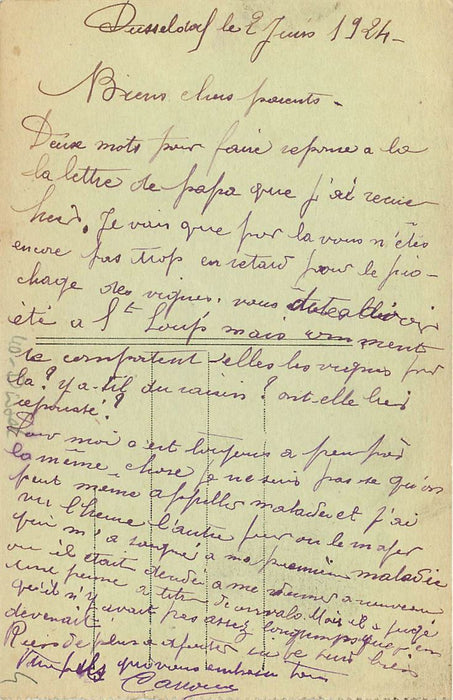 Dusseldorf le 2 Juin 1924 -
Biens chers parents -
Deux mots pour faire reponse a la
la lettre de papa que j'ai recue
hier. Je vois que par la vous n'êtes
encore pas trop en retard pour le pio-
chage des vignes, vous dites avoir
été a St Loup mais comment
se comportent-elles les vignes par
la? y a-t-il du raisin? ont-elle bien
repoussé?
Pour moi c'est toujours a peu près
la même chose je ne suis pas ce qu'on
peut même appeller malade et j'ai
vu l'heure l'autre jour ou le major
qui m'a soigné a ma première maladie
ou il était decidé a me donner a nouveau
une permе a titre de convalo. Mais il a jugé
qu'il n'y avait pas assez longtemps que j'en
devenait.
Rien de plus a ajouter
Votre fils qui vous embrasse tous